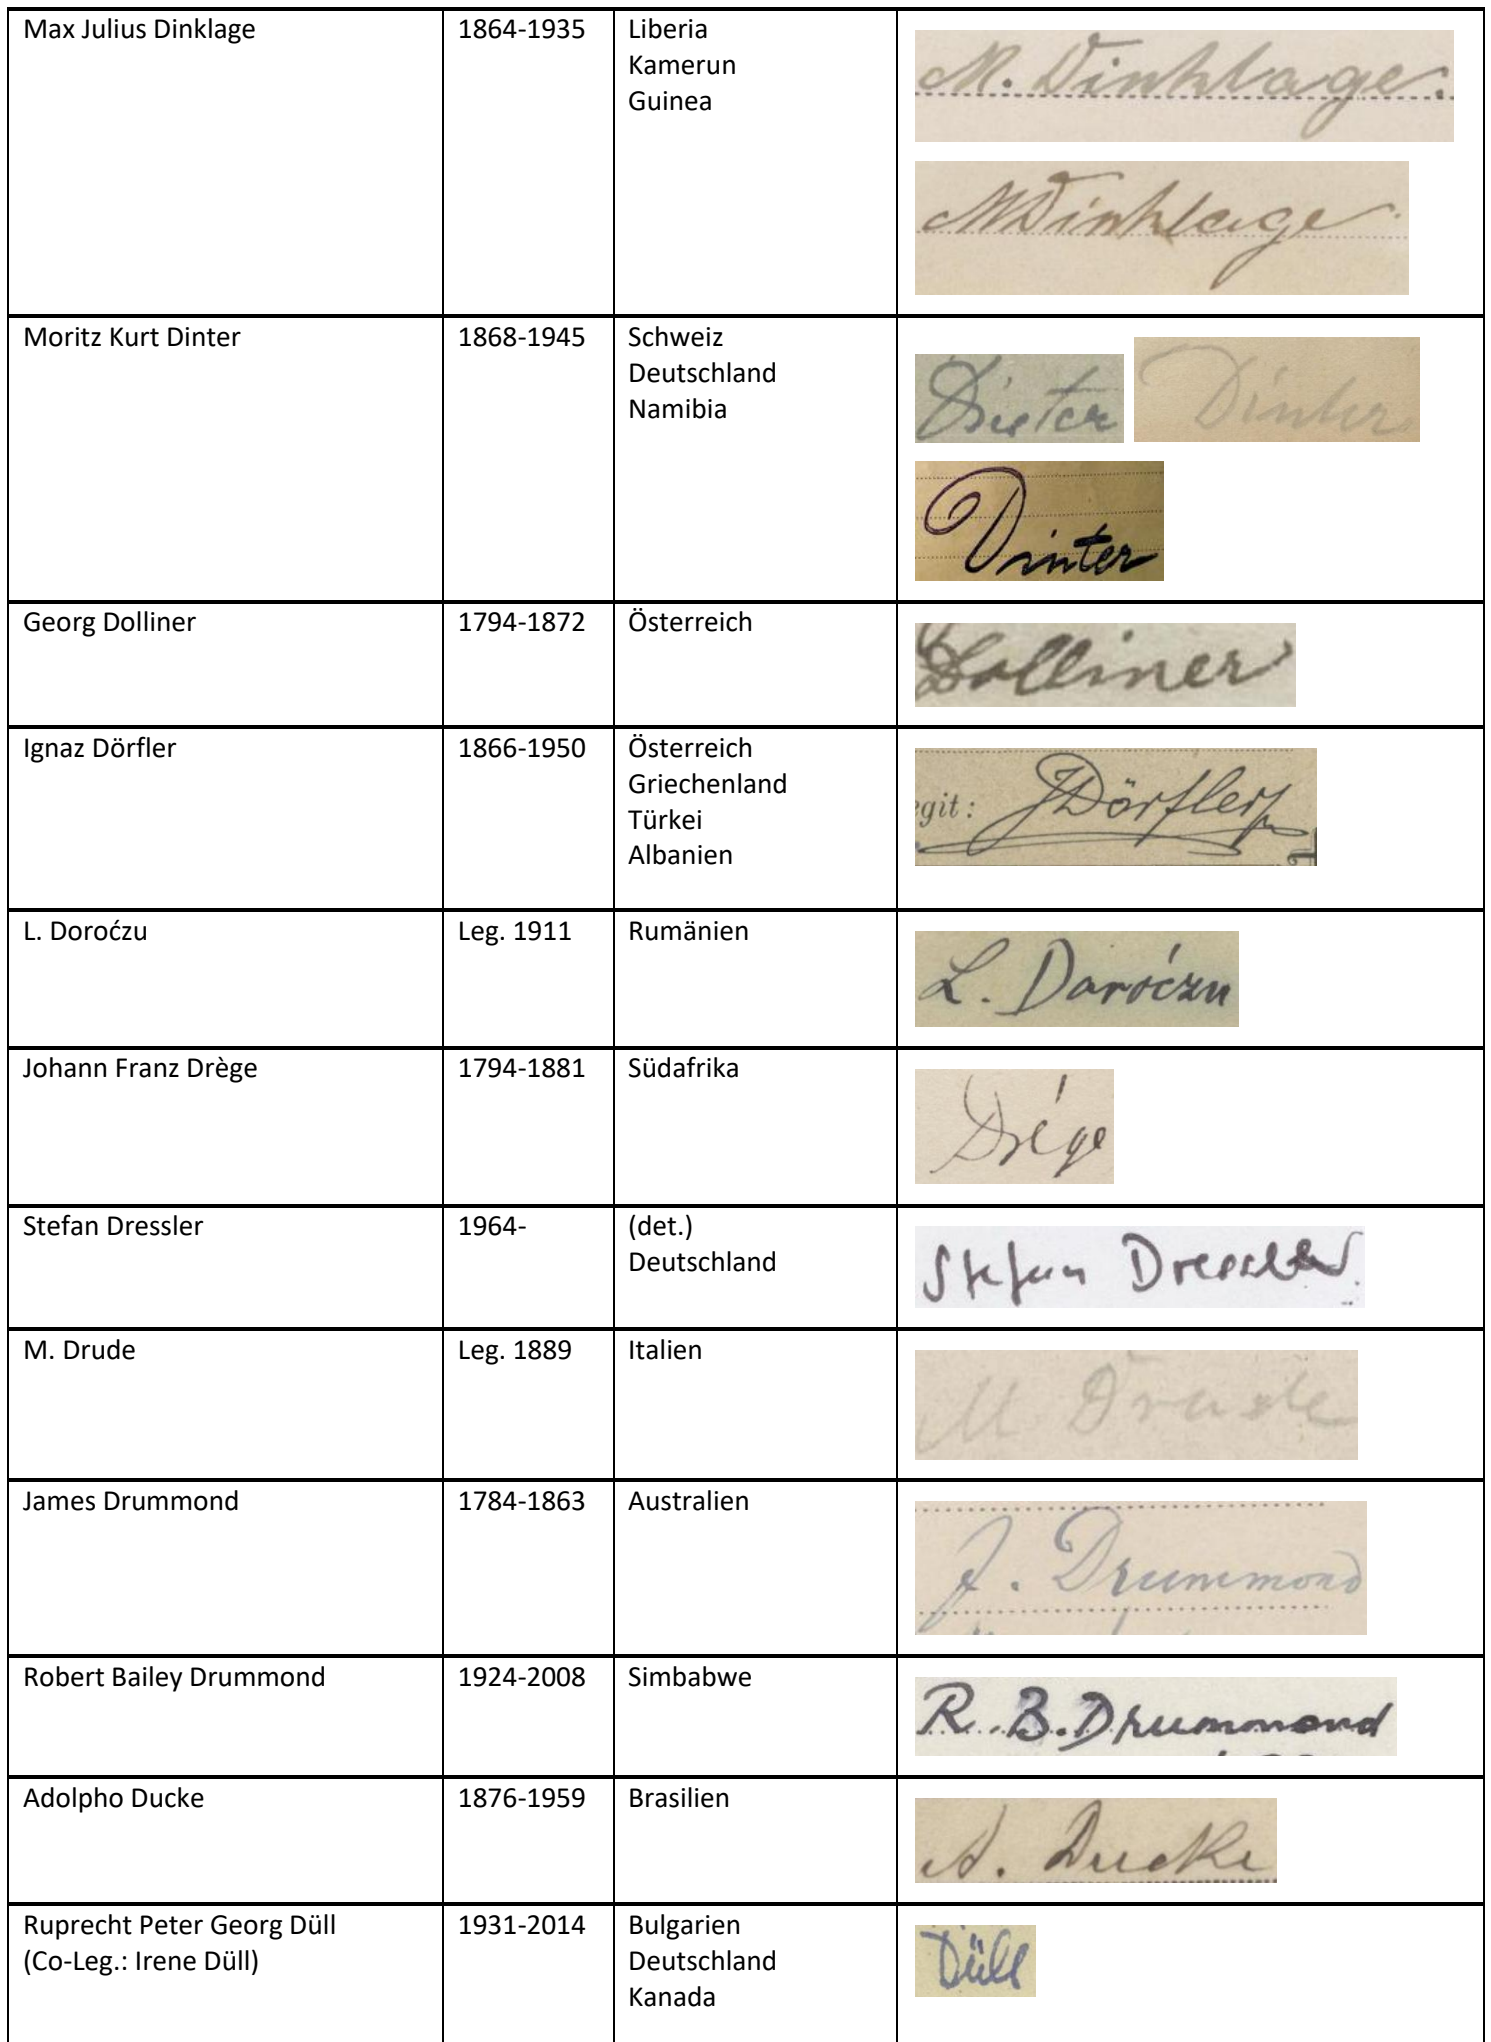 Max Julius Dinklage
1864-1935
Liberia
Kamerun
Guinea
M. Dinklage.
MDinklage
Moritz Kurt Dinter
1868-1945
Schweiz
Deutschland
Namibia
Dinter
Dinter
Dinter
Georg Dolliner
1794-1872
Österreich
Dolliner
Ignaz Dörfler
1866-1950
Österreich
Griechenland
Türkei
Albanien
egit: JDörfler
L. Doroćzu
Leg. 1911
Rumänien
L. Daroćzu
Johann Franz Drège
1794-1881
Südafrika
Drége
Stefan Dressler
1964-
(det.)
Deutschland
Stefan Dressler
M. Drude
Leg. 1889
Italien
M Drude
James Drummond
1784-1863
Australien
J. Drummond
Robert Bailey Drummond
1924-2008
Simbabwe
R. B. Drummond
Adolpho Ducke
1876-1959
Brasilien
A. Ducke
Ruprecht Peter Georg Düll
(Co-Leg.: Irene Düll)
1931-2014
Bulgarien
Deutschland
Kanada
Düll